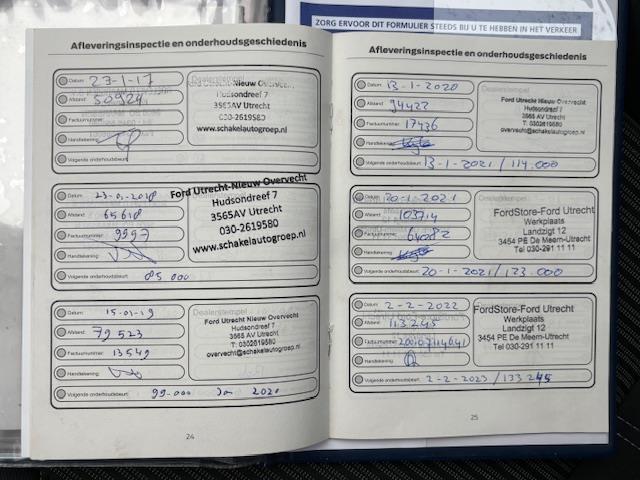 ZORG ERVOOR DIT FORMULIER STEEDS BIJ U TE HEBBEN IN HET VERKEER
Afleveringsinspectie en onderhoudsgeschiedenis
Datum: 23-1-17
Afstand: 50924
Factuurnummer:
Handtekening:
Volgende onderhoudsbeurt:
Dealerstempel
Ford Utrecht Nieuw Overvecht
Hudsondreef 7
3565AV Utrecht
030-2619580
www.schakelautogroep.nl
Datum: 23-01-2018
Afstand: 65618
Factuurnummer: 9997
Handtekening:
Volgende onderhoudsbeurt: 85 000
Ford Utrecht-Nieuw Overvecht
Hudsondreef 7
3565AV Utrecht
030-2619580
www.schakelautogroep.nl
Datum: 15-01-19
Afstand: 79523
Factuurnummer: 13549
Handtekening:
Volgende onderhoudsbeurt: 99-000 Jan 2020
Dealerstempel
Ford Utrecht Nieuw Overvecht
Hudsondreef 7
3565 AV Utrecht
T: 0302619580
overvecht@schakelautogroep.nl
24
Afleveringsinspectie en onderhoudsgeschiedenis
Datum: 13-1-2020
Afstand: 94422
Factuurnummer: 17436
Handtekening:
Volgende onderhoudsbeurt: 13-1-2021 / 114.000
Dealerstempel
Ford Utrecht Nieuw Overvecht
Hudsondreef 7
3565 AV Utrecht
T: 0302619580
overvecht@schakelautogroep.nl
Datum: 20-1-2021
Afstand: 103714
Factuurnummer:
Handtekening:
Volgende onderhoudsbeurt: 20-1-2021 / 123.000
Dealerstempel
FordStore-Ford Utrecht
Werkplaats
Landzigt 12
3454 PE De Meern-Utrecht
Tel 030-291 11 11
Datum: 2-2-2022
Afstand: 113245
Factuurnummer:
Handtekening:
Volgende onderhoudsbeurt: 2-2-2023 / 133 245
FordStore-Ford Utrecht
Werkplaats
Landzigt 12
3454 PE De Meern-Utrecht
Tel 030-291 11 11
25